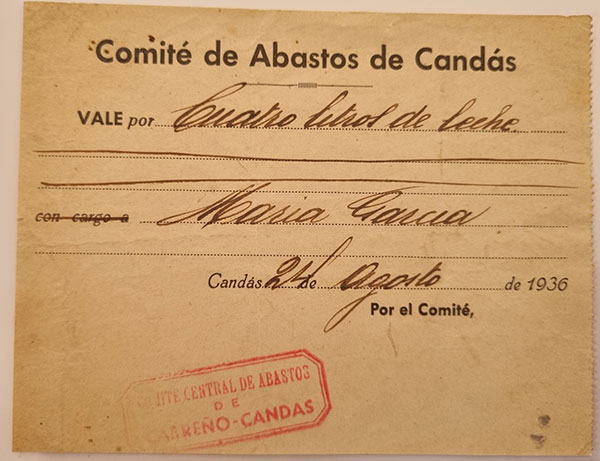 Comité de Abastos de Candás
VALE por Cuatro litros de leche.
con cargo a Maria Garcia
Candás 24 de Agosto de 1936
Por el Comité,
COMITE CENTRAL DE ABASTOS
DE
CARREÑO-CANDAS